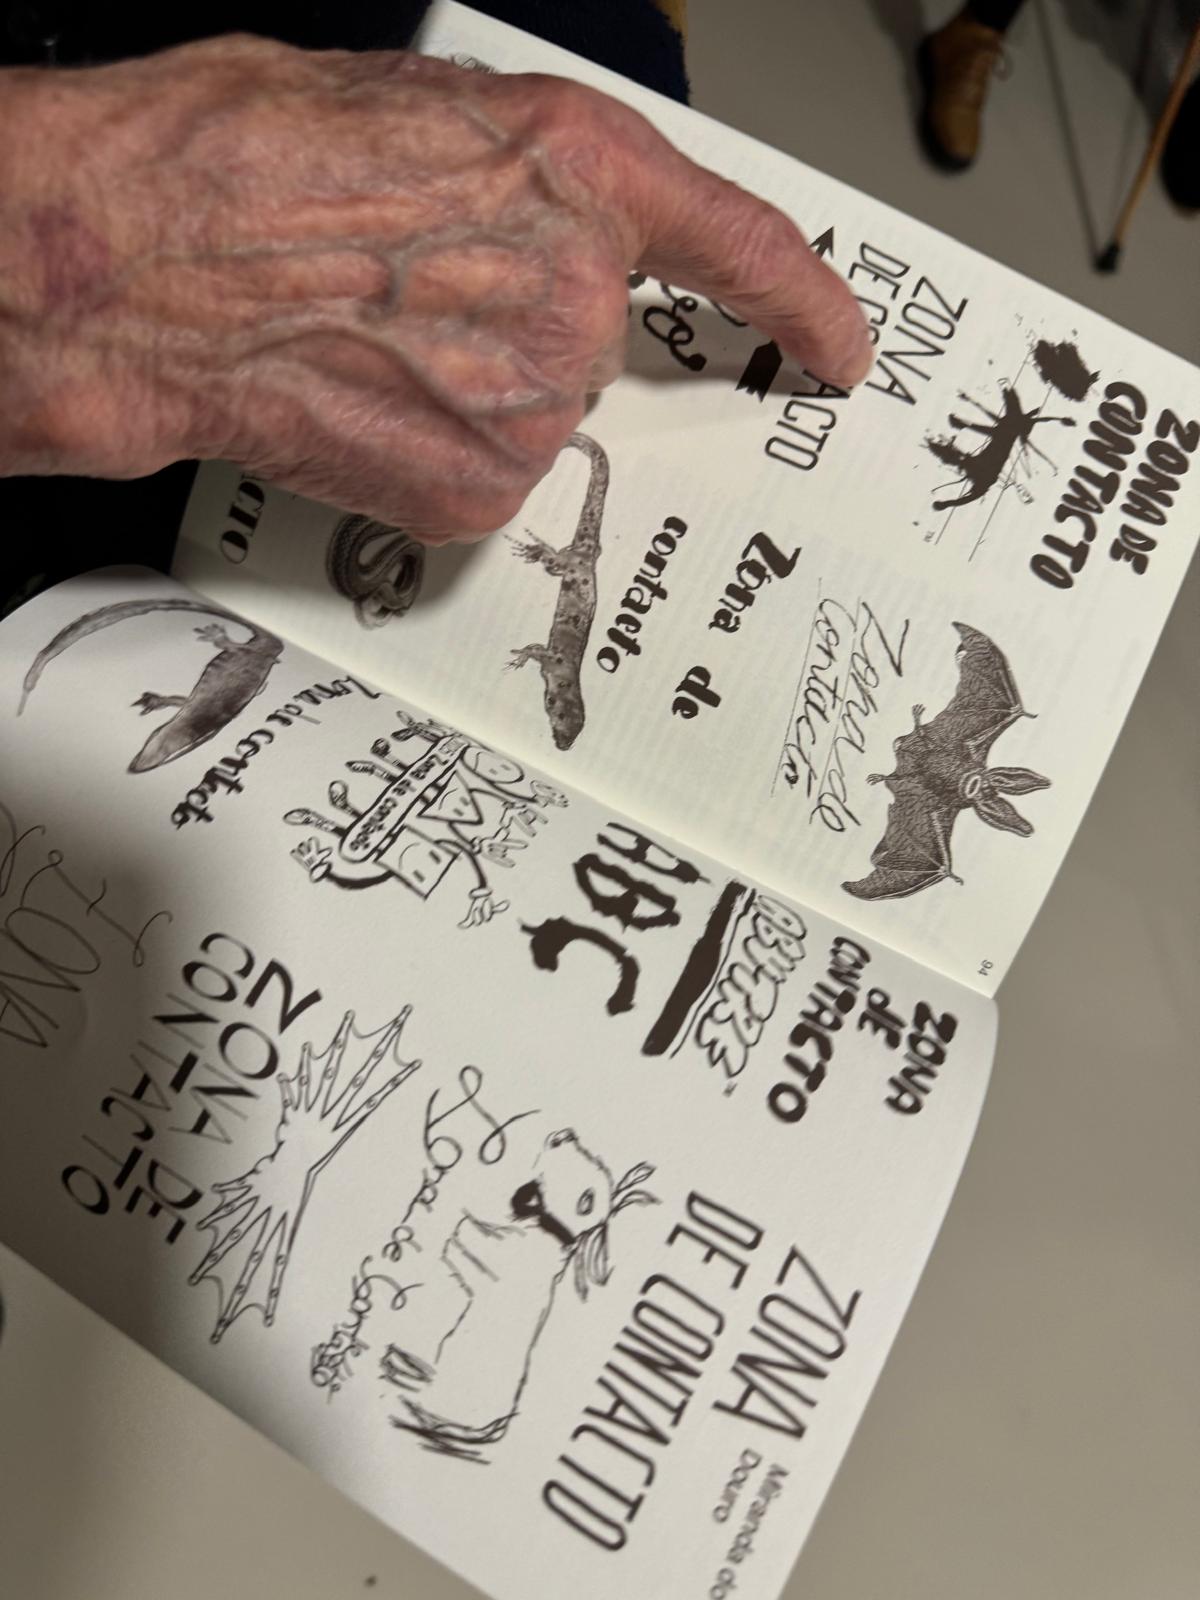 ZONA DE
CONTACTO
TM
ZONA
DE CO
ACTO
Zona de
Contacto
Zona de
contacto
ACTO
94
ZONA
DE
CONTACTO
ABUTRE
TM
ABC
Zona de contacto
Zona de contacto
Zona de contacto
ZONA
DE CONTACTO
Miranda do
Douro
Zona de Contacto
ZONA DE
CONTACTO
ZONA